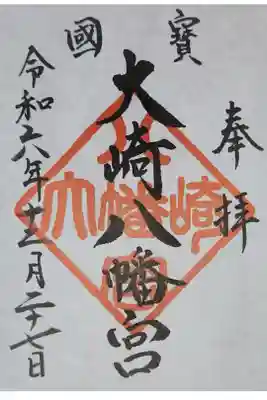 奉拝
國寶
大崎八幡宮
令和六年十二月二十七日